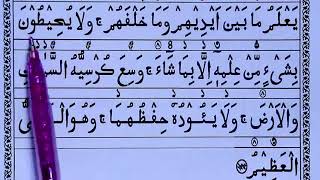 يَعْلَمُ مَا بَيْنَ اَيْدِيْهِمْ وَمَا خَلْفَهُمْ ۚ وَلَا يُحِيْطُوْنَ
بِشَیْءٍ مِّنْ عِلْمِهٖۤ اِلَّا بِمَا شَآءَ ۚ وَسِعَ كُرْسِيُّهُ
وَالْاَرْضَ ۚ وَلَا يَـُٔوْدُهٗ حِفْظُهُمَا ۚ وَهُوَ
الْعَظِيْمُ